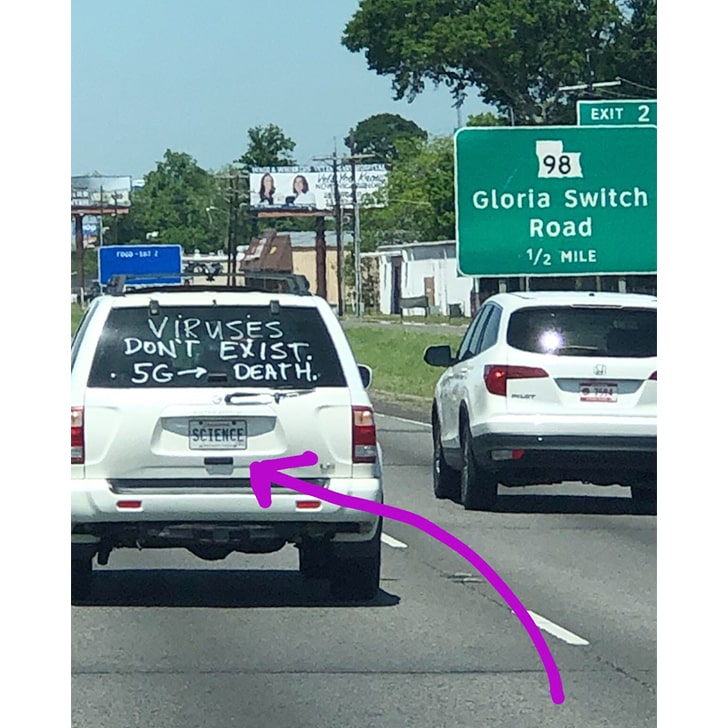 EXIT 2
98
Gloria Switch
Road
1/2 MILE
FOOD - EXIT 2
VIRUSES
DON'T EXIST.
. 5G → DEATH.
SCIENCE
PILOT